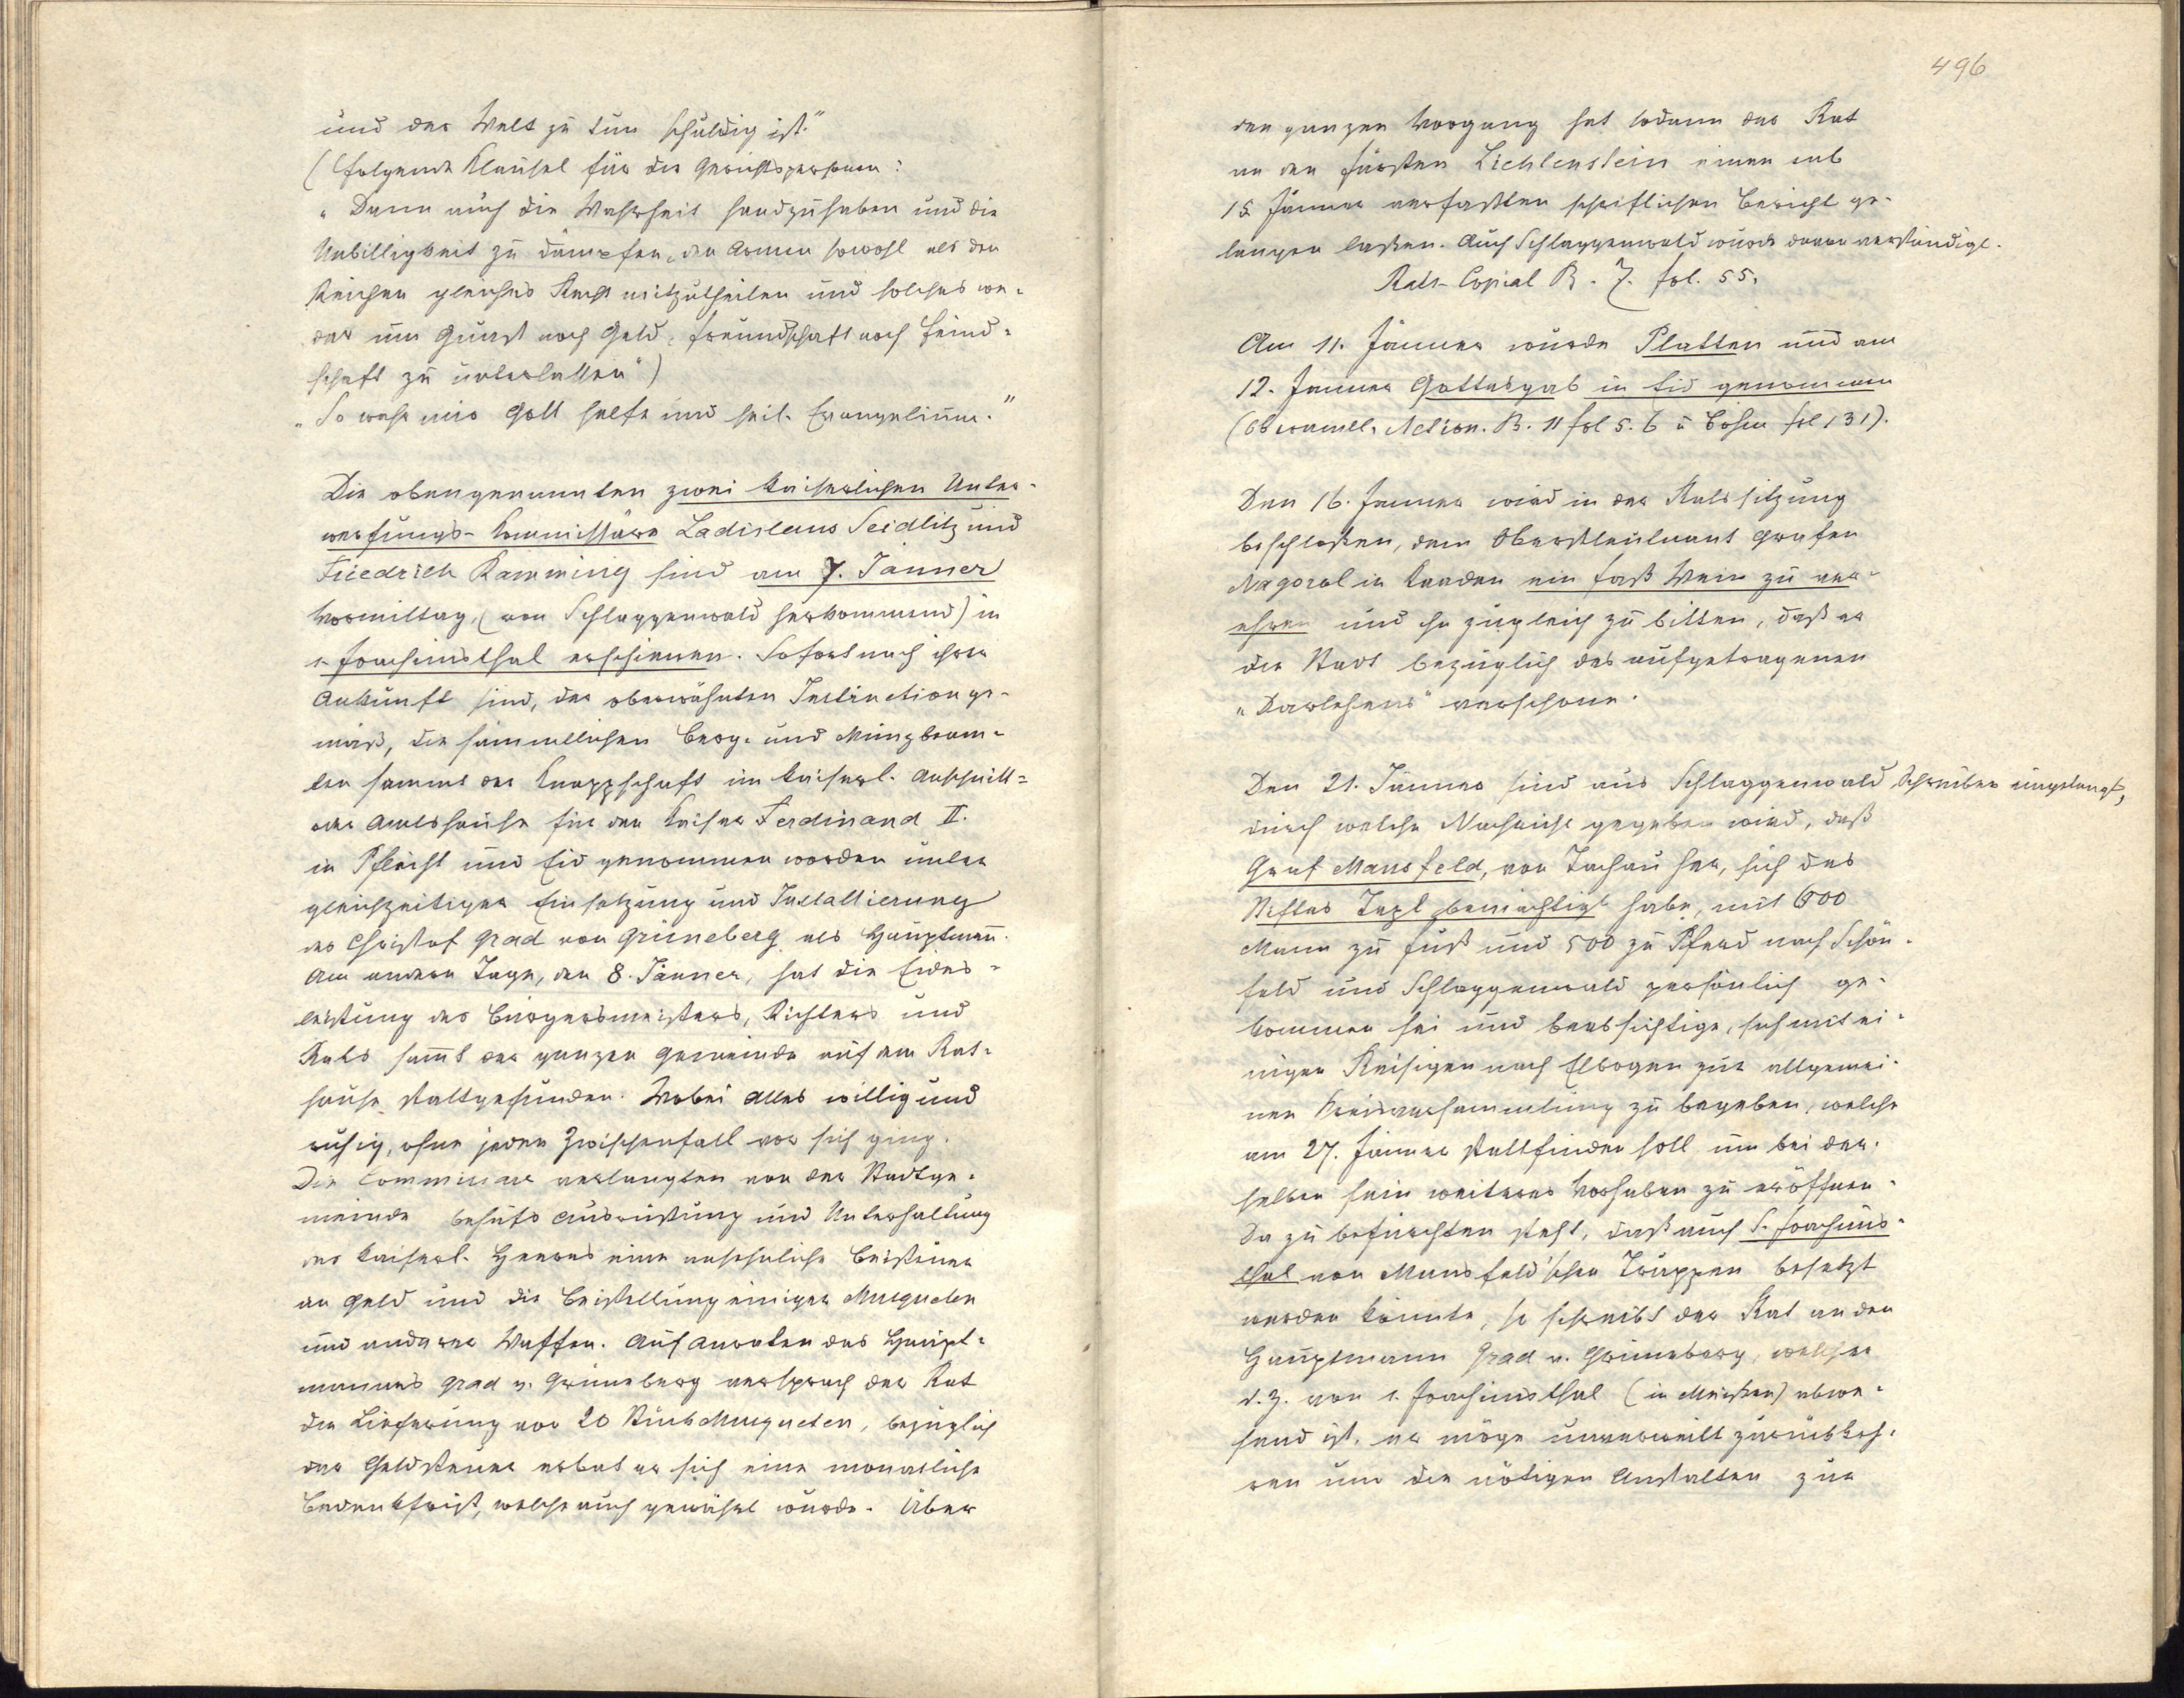 und der Welt zu tun schuldig ist."
(folgende Klausel für die Gerichtspersonen:
"Dann auch die Wahrheit handzuhaben und die
Unbilligkeit zu dämpfen, den Armen sowohl als den
Reichen gleiches Recht mitzutheilen und solches we-
der um Gunst noch Geld, Freundschaft noch Feind-
schaft zu unterlassen")
"So wahr mir Gott helfe und heil. Evangelium."
Die obengenannten zwei kaiserlichen Unter-
werfungs-Kommissäre Ladislaus Seidlitz und
Friedrich Kamming sind am 7. Jänner
Vormittag, (von Schlaggenwald herkommend) in
s. Joachimsthal erschienen. Sofort nach ihrer
Ankunft sind, der oberwähnten Instruction ge-
mäß, die sämmtlichen Berg- und Münzbeam-
ten sammt der Knappschaft im kaiserl. Anschnitt-
oder Amtshause für den Kaiser Ferdinand II.
in Pflicht und Eid genommen worden unter
gleichzeitiger Einsetzung und Installierung
des Christof Grad von Grüneberg als Hauptmann.
Am andern Tage, den 8. Jänner, hat die Eides-
leistung des Bürgermeisters, Richters und
Rats sammt der ganzen Gemeinde auf dem Rat-
hause stattgefunden. Wobei Alles willig und
ruhig, ohne jeden Zwischenfall vor sich ging.
Die Commissäre verlangten von der Stadtge-
meinde behufs Ausrüstung und Unterhaltung
des kaiserl. Heeres eine ansehnliche Beisteuer
an Geld und die Beistellung einiger Musqueten
und anderer Waffen. Auf Anraten des Haupt-
mannes Grad v. Grüneberg versprach der Rat
die Lieferung von 20 Stück Musqueten, bezüglich
der Geldsteuer erbat er sich eine monatliche
Bedenkfrist, welche auch gewährt wurde. Über
496
den ganzen Vorgang hat sodann der Rat
an den Fürsten Lichtenstein einen sub
15 Jänner verfaßten schriftlichen Bericht ge-
langen lassen. Auch Schlaggenwald wurde davon verständigt.
Rats-Copial B. 7. fol. 55.
Am 11. Jänner wurde Platten und am
12. Jänner Gottesgab in Eid genommen
(Oberamtl. Action. B. 11 fol 5. 6 u Böhm fol 131).
Den 16. Jänner wird in der Ratssitzung
beschloßen, dem Oberstleutnant Grafen
Nagorol in Kaaden ein Faß Wein zu ver-
ehren und ihn zugleich zu bitten, daß er
die Stadt bezüglich des aufgetragenen
"Darlehens" verschone.
Den 21. Jänner sind aus Schlaggenwald Schreiben eingelangt,
durch welche Nachricht gegeben wird, daß
Graf Mansfeld, von Tachau her, sich des
Stiftes Tepl bemächtigt habe, mit 600
Mann zu Fuß und 500 zu Pferd nach Schön-
feld und Schlaggenwald persönlich ge-
kommen sei und beabsichtige, sich mit ei-
nigen Reisigen nach Elbogen zur allgemei-
nen Kreisversammlung zu begeben, welche
am 27. Jänner stattfinden soll um bei der-
selben sein weiteres Vorhaben zu eröffnen.
Da zu befürchten steht, daß auch S. Joachims-
thal von Mansfeld'schen Truppen besetzt
werden könnte, so schreibt der Rat an den
Hauptmann Grad v. Grüneberg, welcher
d. Z. von s. Joachimsthal (in Meißen) abwe-
send ist, er möge unverweilt zurückkeh-
ren um die nötigen Anstalten zur